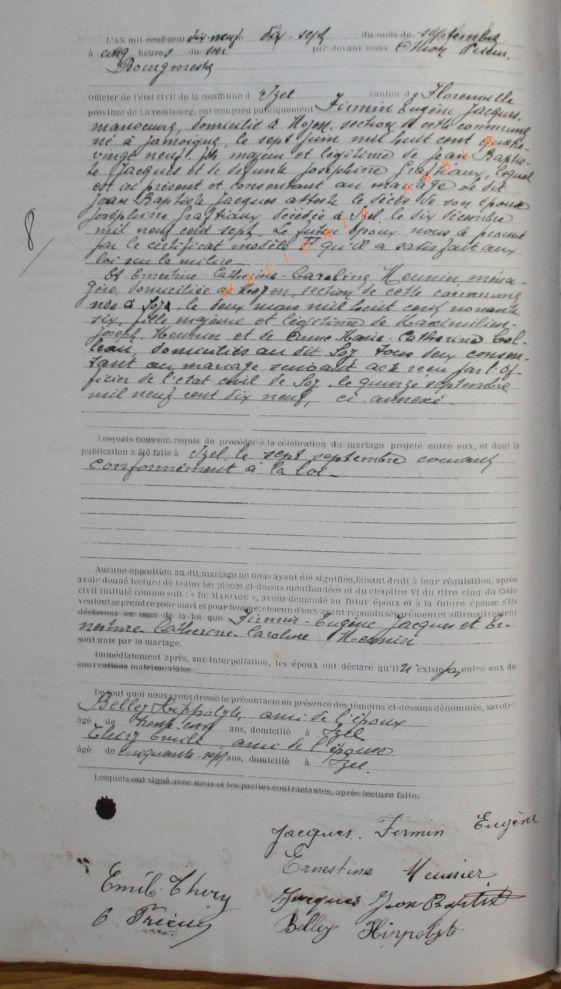 L'AN mil neuf cent dix-neuf dix-sept du mois de septembre
à cinq heures du soir par devant nous
Bourgmestre
Officier de l'état civil de la commune d Izel canton d Florenville
province de Luxembourg, ont comparu publiquement Firmin Eugène Jacques,
manoeuvre, domicilié à section de cette commune
né à Jamoigne, le sept juin mil huit cent quatre
vingt neuf, fils majeur et légitime de Jean Baptis-
te Jacques et de défunte Joséphine lequel
est ici présent et consentant au mariage Le dit
Jean Baptiste Jacques atteste le décès de son épouse
Joséphine décédée à Izel, le dix décembre
mil neuf cent sept. Le futur époux nous a prouvé
par le certificat modèle qu'il a satisfait aux
lois sur la milice
Et Ernestine-Catherine-Caroline Meunier, ména-
gère, domiciliée à section de cette commune
née à le deux mars mil huit cent nonante
six, fille majeure et légitime de Maximilien-
Joseph Meunier et de Anne-Marie-Catherine
domiciliés au dit tous deux consen-
tant au mariage suivant acte reçu par l'of-
ficier de l'état civil de le quinze septembre
mil neuf cent dix neuf, ci annexé
8
WALLONIA
Lesquels nous ont requis de procéder à la célébration du mariage projeté entre eux, et dont la
publication a été faite à Izel le sept septembre courant
conformément à la loi
Aucune opposition au dit mariage ne nous ayant été signifiée, faisant droit à leur réquisition, après
avoir donné lecture de toutes les pièces ci-dessus mentionnées et du chapitre VI du titre cinq du Code
civil intitulé comme suit : « DU MARIAGE », avons demandé au futur époux et à la future épouse s'ils
veulent se prendre pour mari et pour femme; chacun d'eux ayant répondu séparément et affirmativement
déclarons au nom de la loi que Firmin-Eugène Jacques et Er-
nestine-Catherine Caroline Meunier
sont unis par le mariage.
Immédiatement après, sur interpellation, les époux ont déclaré qu'il n'existe pas entre eux de
conventions matrimoniales
De tout quoi nous avons dressé le présent acte en présence des témoins ci-dessous dénommés, savoir :
Belley Hippolyte, ami de l'époux
âgé de ans, domicilié à Izel
Thiry Emile ami de l'épouse
âgé de cinquante-sept ans, domicilié à Izel.
Lesquels ont signé avec nous et les parties contractantes, après lecture faite.
Jacques Firmin Eugène
Ernestine Meunier
Emile Thiry
Jacques Jean Baptiste
Belley Hippolyte